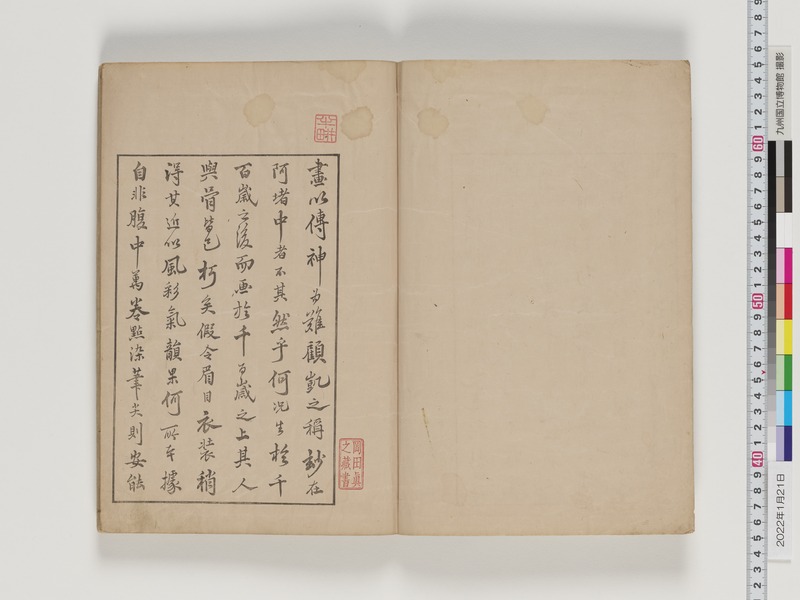 畫以傳神為難顧凱之稱妙在
阿堵中者不其然乎何況生於千
百歲之後而画於千百歲之上其人
與骨皆已朽矣假令眉目衣裝稍
得其近似風彩氣韻果何所本據
自非腹中萬卷點染筆尖則安能
岡田眞
之藏書
九州国立博物館 撮影
2022年1月21日
60
50
40